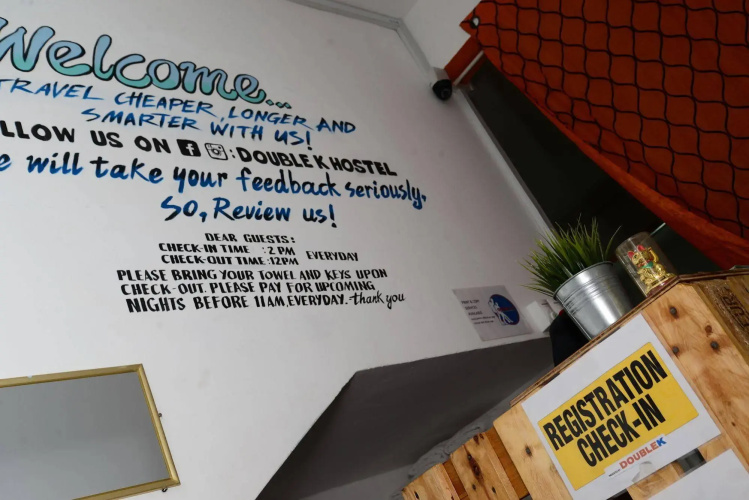 Welcome...
TRAVEL CHEAPER, LONGER AND
SMARTER WITH US!
LLOW US ON f : DOUBLE K HOSTEL
e will take your feedback seriously.
SO, Review us!
DEAR GUESTS:
CHECK-IN TIME : 2 PM
CHECK-OUT TIME: 12PM EVERYDAY
PLEASE BRING YOUR TOWEL AND KEYS UPON
CHECK-OUT. PLEASE PAY FOR UPCOMING
NIGHTS BEFORE 11 AM, EVERYDAY. thank you
REGISTRATION
CHECK-IN
DOUBLEK